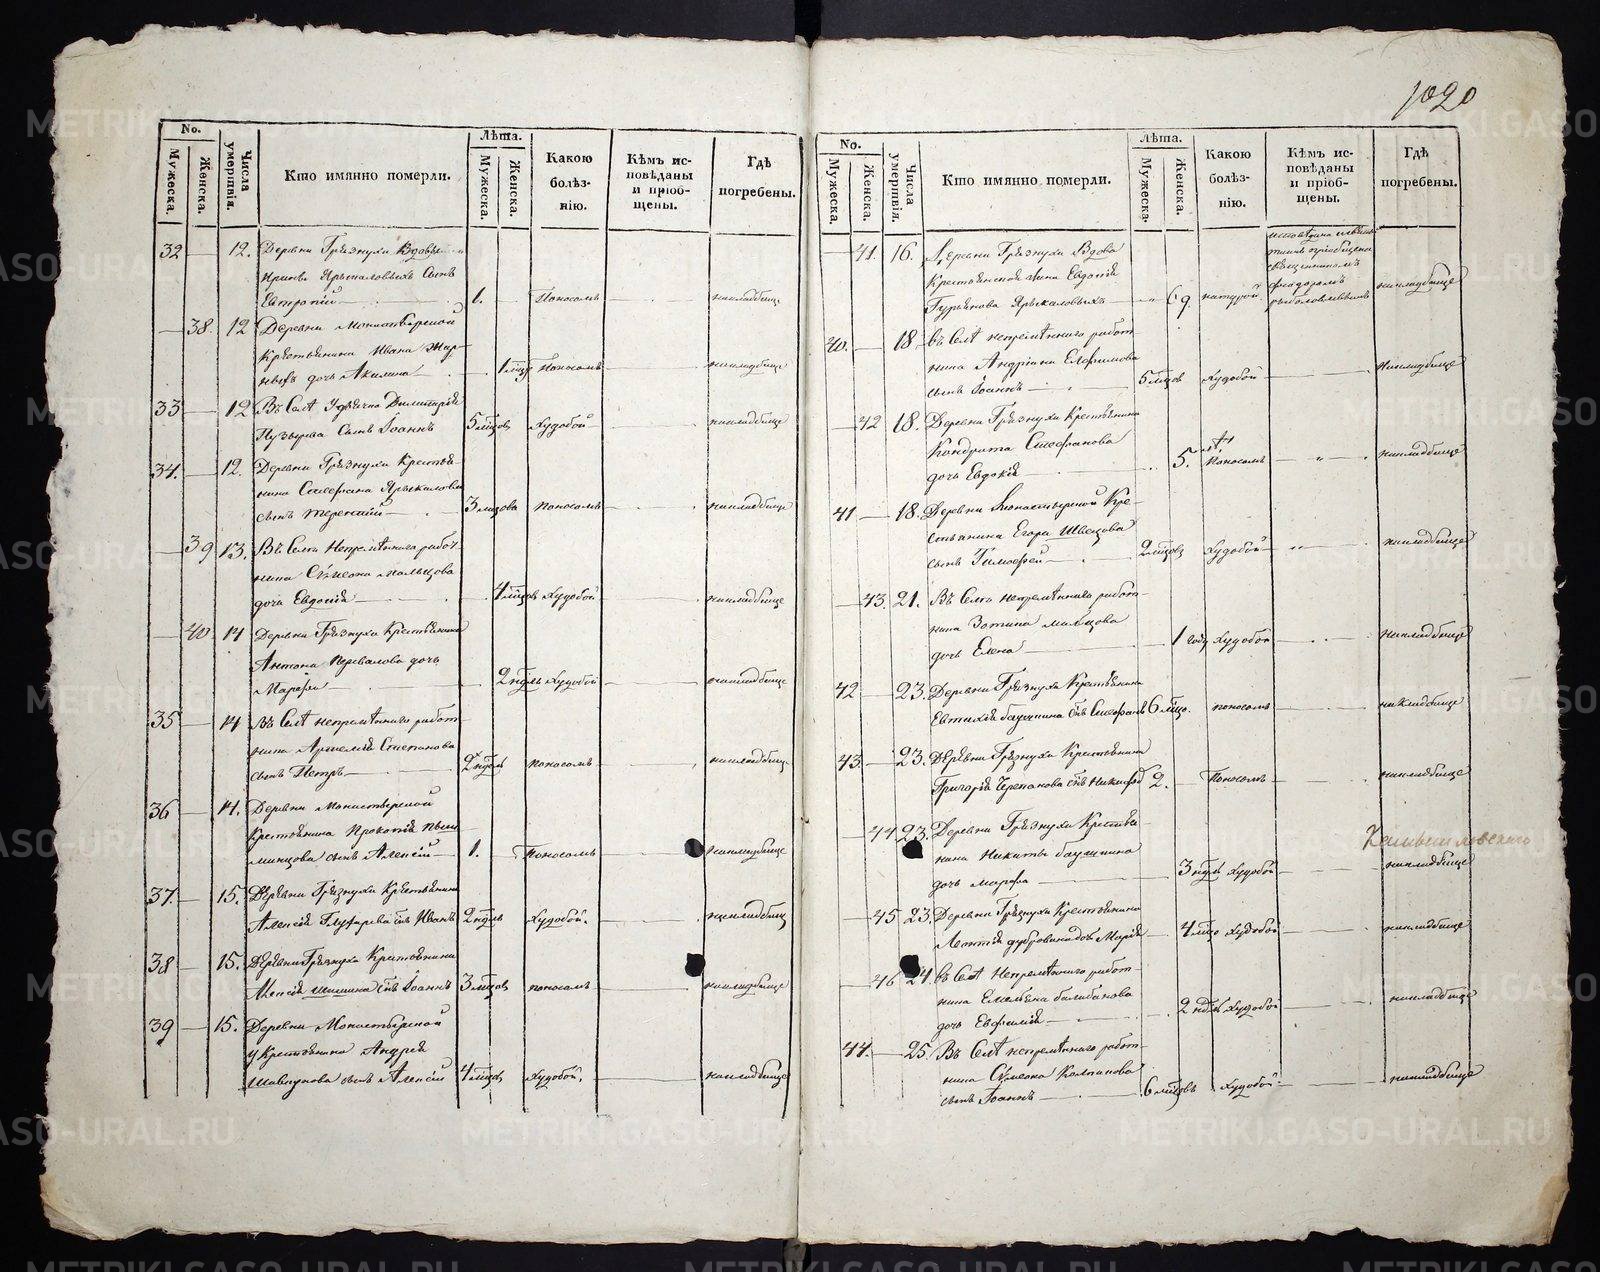 1020
No.
Мужеска.
Женска.
Числа умершвія.
Кто имянно померли.
Лѣта.
Мужеска.
Женска.
Какою болѣзнію.
Кѣмъ исповѣданы и пріобщены.
Гдѣ погребены.
32 12. Деревни Грязнухи Вдовы
Ирины Ярыкаловыхъ Сынъ
Евтропій 1. Поносомъ накладбище
38. 12 Деревни Монастырской
Крестьянина Ивана
дочь Акилина 1 Поносомъ накладбище
33 12 Въ Селѣ Удѣльна Димитрія
Пузырева Сынъ Іоаннъ 5 мѣцовъ Худобой накладбище
34. 12. Деревни Грязнухи Крестья
нина Стефана Ярыкалова
сынъ Терентій 3 мѣцова поносомъ накладбище
39 13. Въ Селѣ Непремѣннаго работ
ника Сѵмеона Мальцова
дочь Евдокія 4 мѣцовъ Худобой накладбище
40. 14 Деревни Грязнухи Крестьянина
Антона Перевалова дочь
Марѳа 2 ндѣль Худобой накладбище
35 14 Въ Селѣ непремѣннаго работ
ника Артемія Степанова
сынъ Петръ 2 ндѣль поносомъ накладбище
36 14. Деревни Монастырской
Крестьянина Прокопія Пыш
минцова сынъ Алексій 1. Поносомъ накладбище
37. 15. Деревни Грязнухи Крестьянина
Алексія Глухарева снъ Иванъ 2 ндѣль Худобой. накладбище
38 15. Деревни Грязнухи Крестьянина
Алексія Шишкина снъ Іоаннъ 3 мѣцовъ поносомъ накладбище
39 15. Деревни Монастырской
у Крестьянина Андрея
сынъ Алексій 4 мѣцовъ Худобой. накладбище
No.
Мужеска.
Женска.
Числа умершвія.
Кто имянно померли.
Лѣта.
Мужеска.
Женска.
Какою болѣзнію.
Кѣмъ исповѣданы и пріобщены.
Гдѣ погребены.
41. 16. Деревни Грязнухи Вдова
Крестьянская жена Евдокія
Гурьянова Ярыкаловыхъ 69 натурой накладбище
исповѣдана
пріобщена
священникомъ
Ѳеодоромъ
40. 18. Въ Селѣ непремѣннаго работ
ника Андріана Ефимова
сынъ Іоаннъ 5 мѣцовъ Худобой накладбище
42 18. Деревни Грязнухи Крестьянина
Кондрата Стефанова
дочь Евдокія 5. поносомъ накладбище
41 18. Деревни Монастырской Кре
стьянина Егора Швецова
сынъ Тимоѳей 2 мѣцовъ Худобой накладбище
43. 21. Въ Селѣ непремѣннаго работ
ника Зотика Мальцова
дочь Елена 1 году Худобой накладбище
42 23. Деревни Грязнухи Крестьянина
Евтихія баушкина снъ Стефанъ 6 мѣцо. поносомъ накладбище
43 23. Деревни Грязнухи Крестьянина
Григорія Черепанова снъ Никифоръ 2. Поносомъ накладбище
44 23. Деревни Грязнухи Крестья
нина Никиты баушкина
дочь Марѳа 3 ндѣль Худобой накладбище
Камышловскаго
45 23. Деревни Грязнухи Крестьянина
Леонтія дубровина дочь Марія 4 мѣцо Худобой накладбище
46 24. Въ Селѣ Непремѣннаго работ
ника Емельяна балабанова
дочь Евфимія 2 ндѣль Худобой накладбище
44. 25. Въ Селѣ непремѣннаго работ
ника Сѵмеона Колпакова
сынъ Іоаннъ 6 мѣцовъ Худобой. накладбище
METRIKI.GASO-URAL.RU